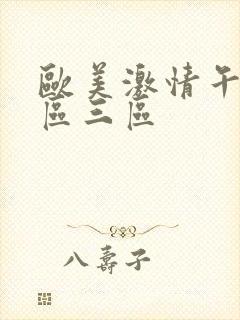 歐美激情午
區三區
八壽子